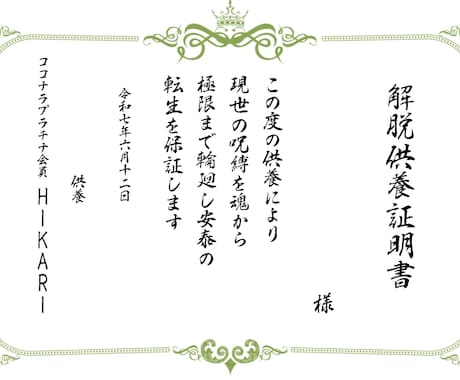 解脱供養証明書
様
この度の供養により
現世の呪縛を魂から
極限まで輪廻し安泰の
転生を保証します
令和七年六月十二日
供養
ココナラプラチナ会員 HIKARI